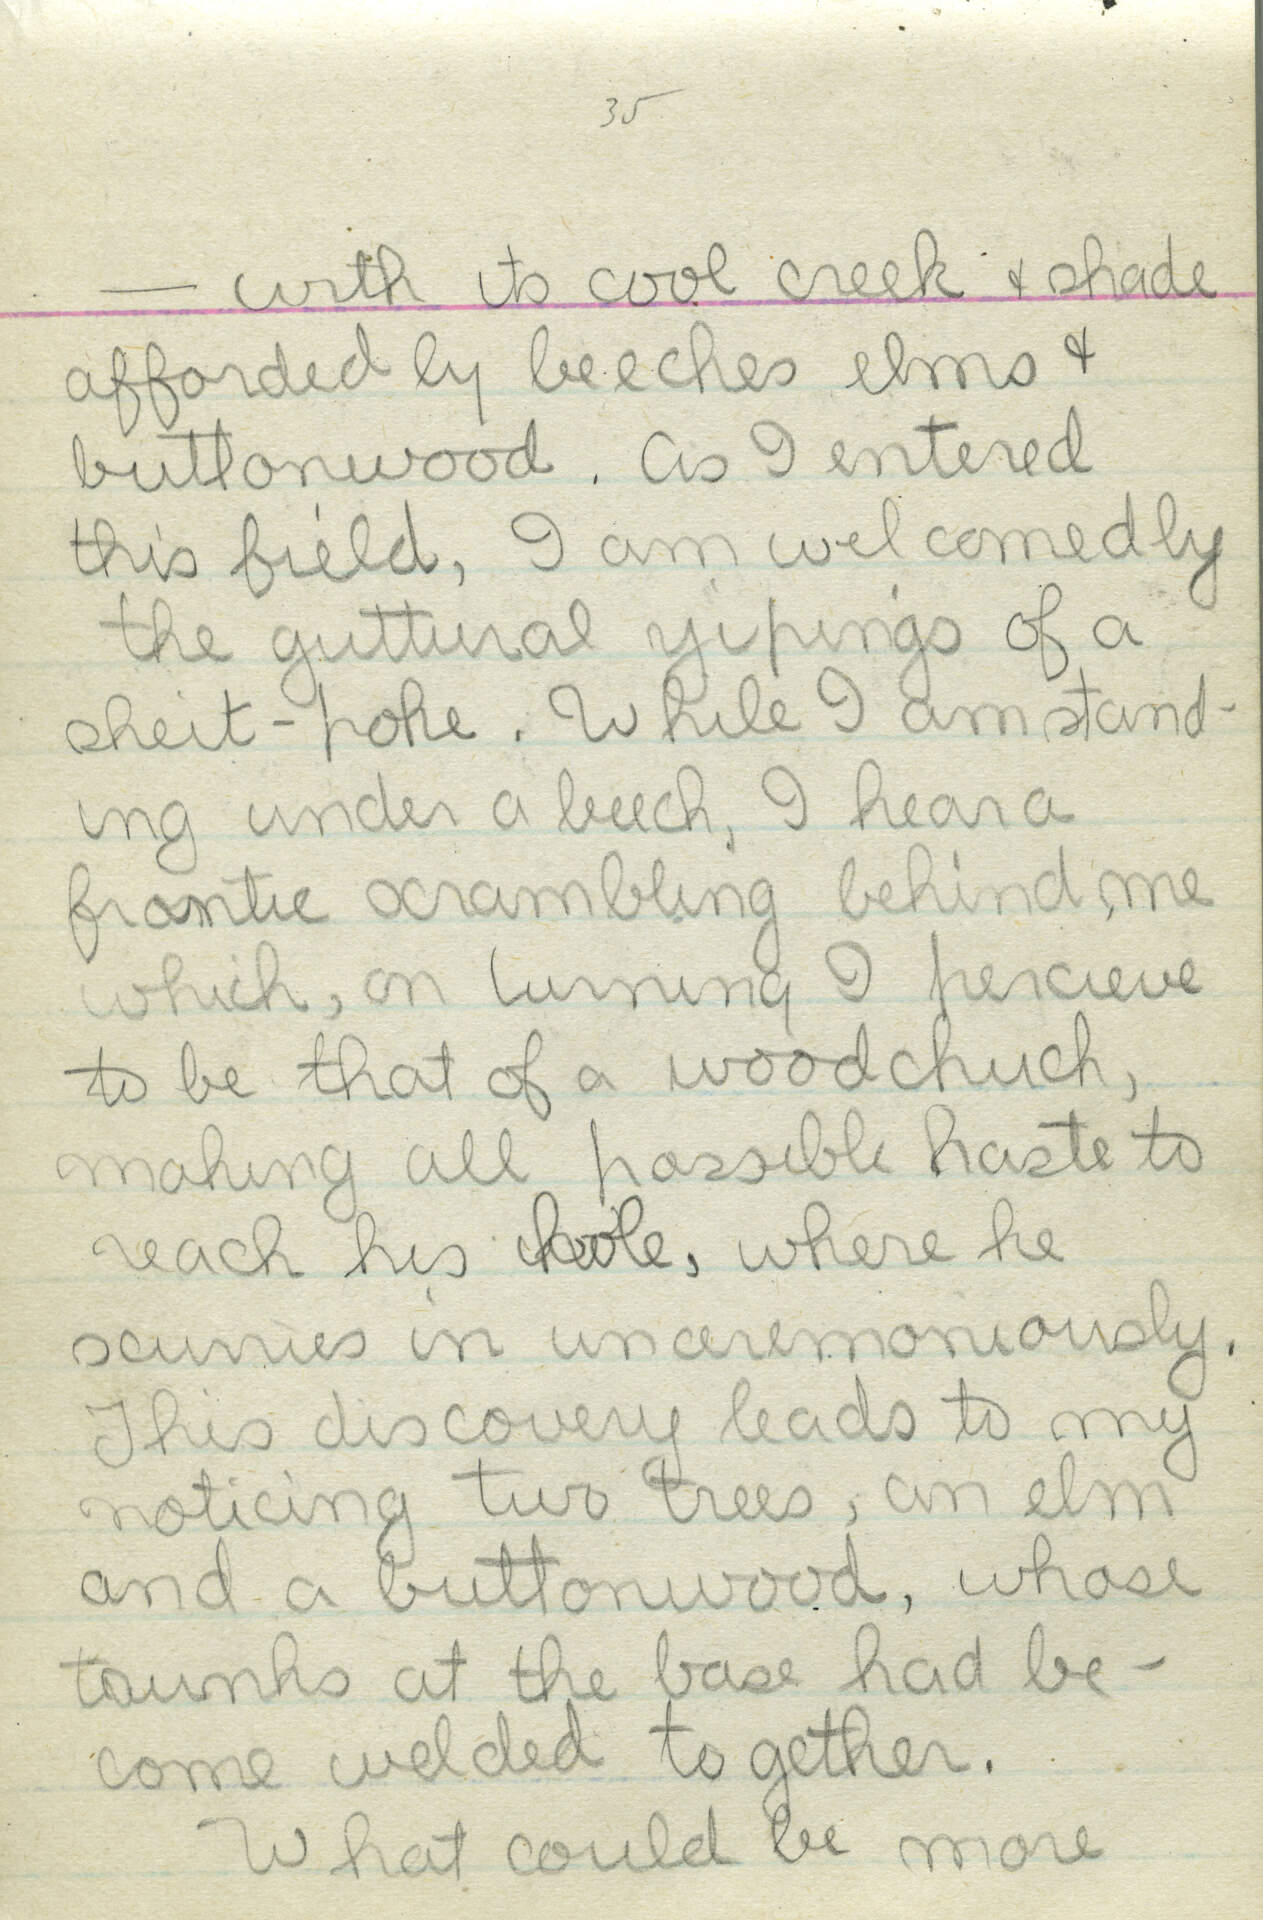 35
— with its cool creek & shade
afforded by beeches elms &
buttonwood. As I entered
this field, I am welcomed by
the guttural yipings of a
sheit-poke. While I am stand-
ing under a beech, I hear a
frantic scrambling behind me
which, on turning I percieve
to be that of a woodchuck,
making all possible haste to
reach his hole, where he
scurries in unceremoniously.
This discovery leads to my
noticing two trees, an elm
and a buttonwood, whose
trunks at the base had be-
come welded together.
What could be more